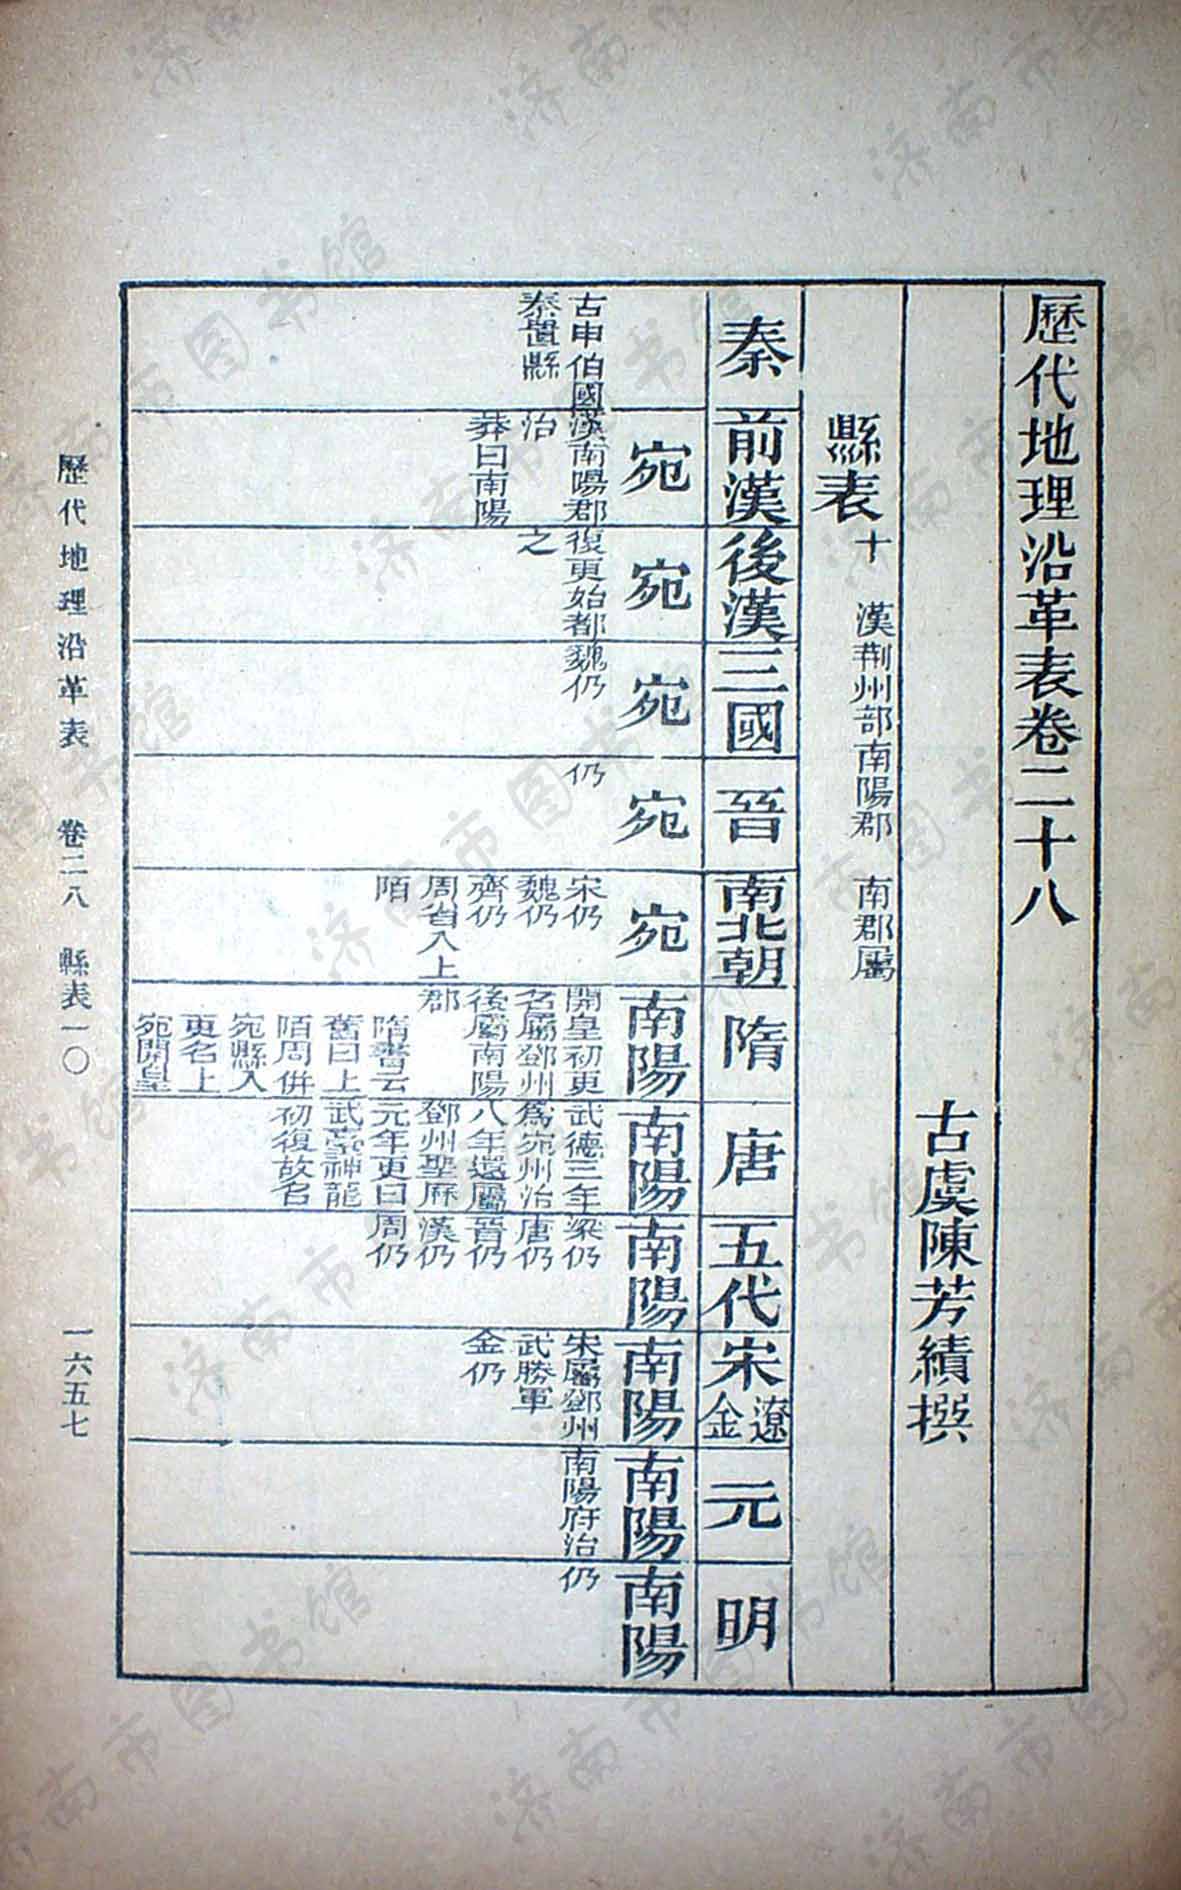 歷代地理沿革表卷二十八
古虞陳芳績撰
縣表十 漢荆州部南陽郡 南郡屬
秦
前漢
後漢
三國
晉
南北朝
隋
唐
五代
宋遼金
元
明
古申伯國
秦置縣
宛
漢南陽郡
治
莽曰南陽
宛
復更始都
之
宛
魏仍
宛
仍
宛
宋仍
魏仍
齊仍
周省入上
陌
南陽
開皇初更
名屬鄧州
後屬南陽
郡
隋書云
舊曰上
陌周併
宛縣入
更名上
宛開皇
南陽
武德三年
爲宛州治
八年還屬
鄧州聖厤
元年更曰
武臺神龍
初復故名
南陽
梁仍
唐仍
晉仍
漢仍
周仍
南陽
宋屬鄧州
武勝軍
金仍
南陽
南陽府治
南陽
仍
歷代地理沿革表 卷二八 縣表一〇 一六五七
济南市图书馆